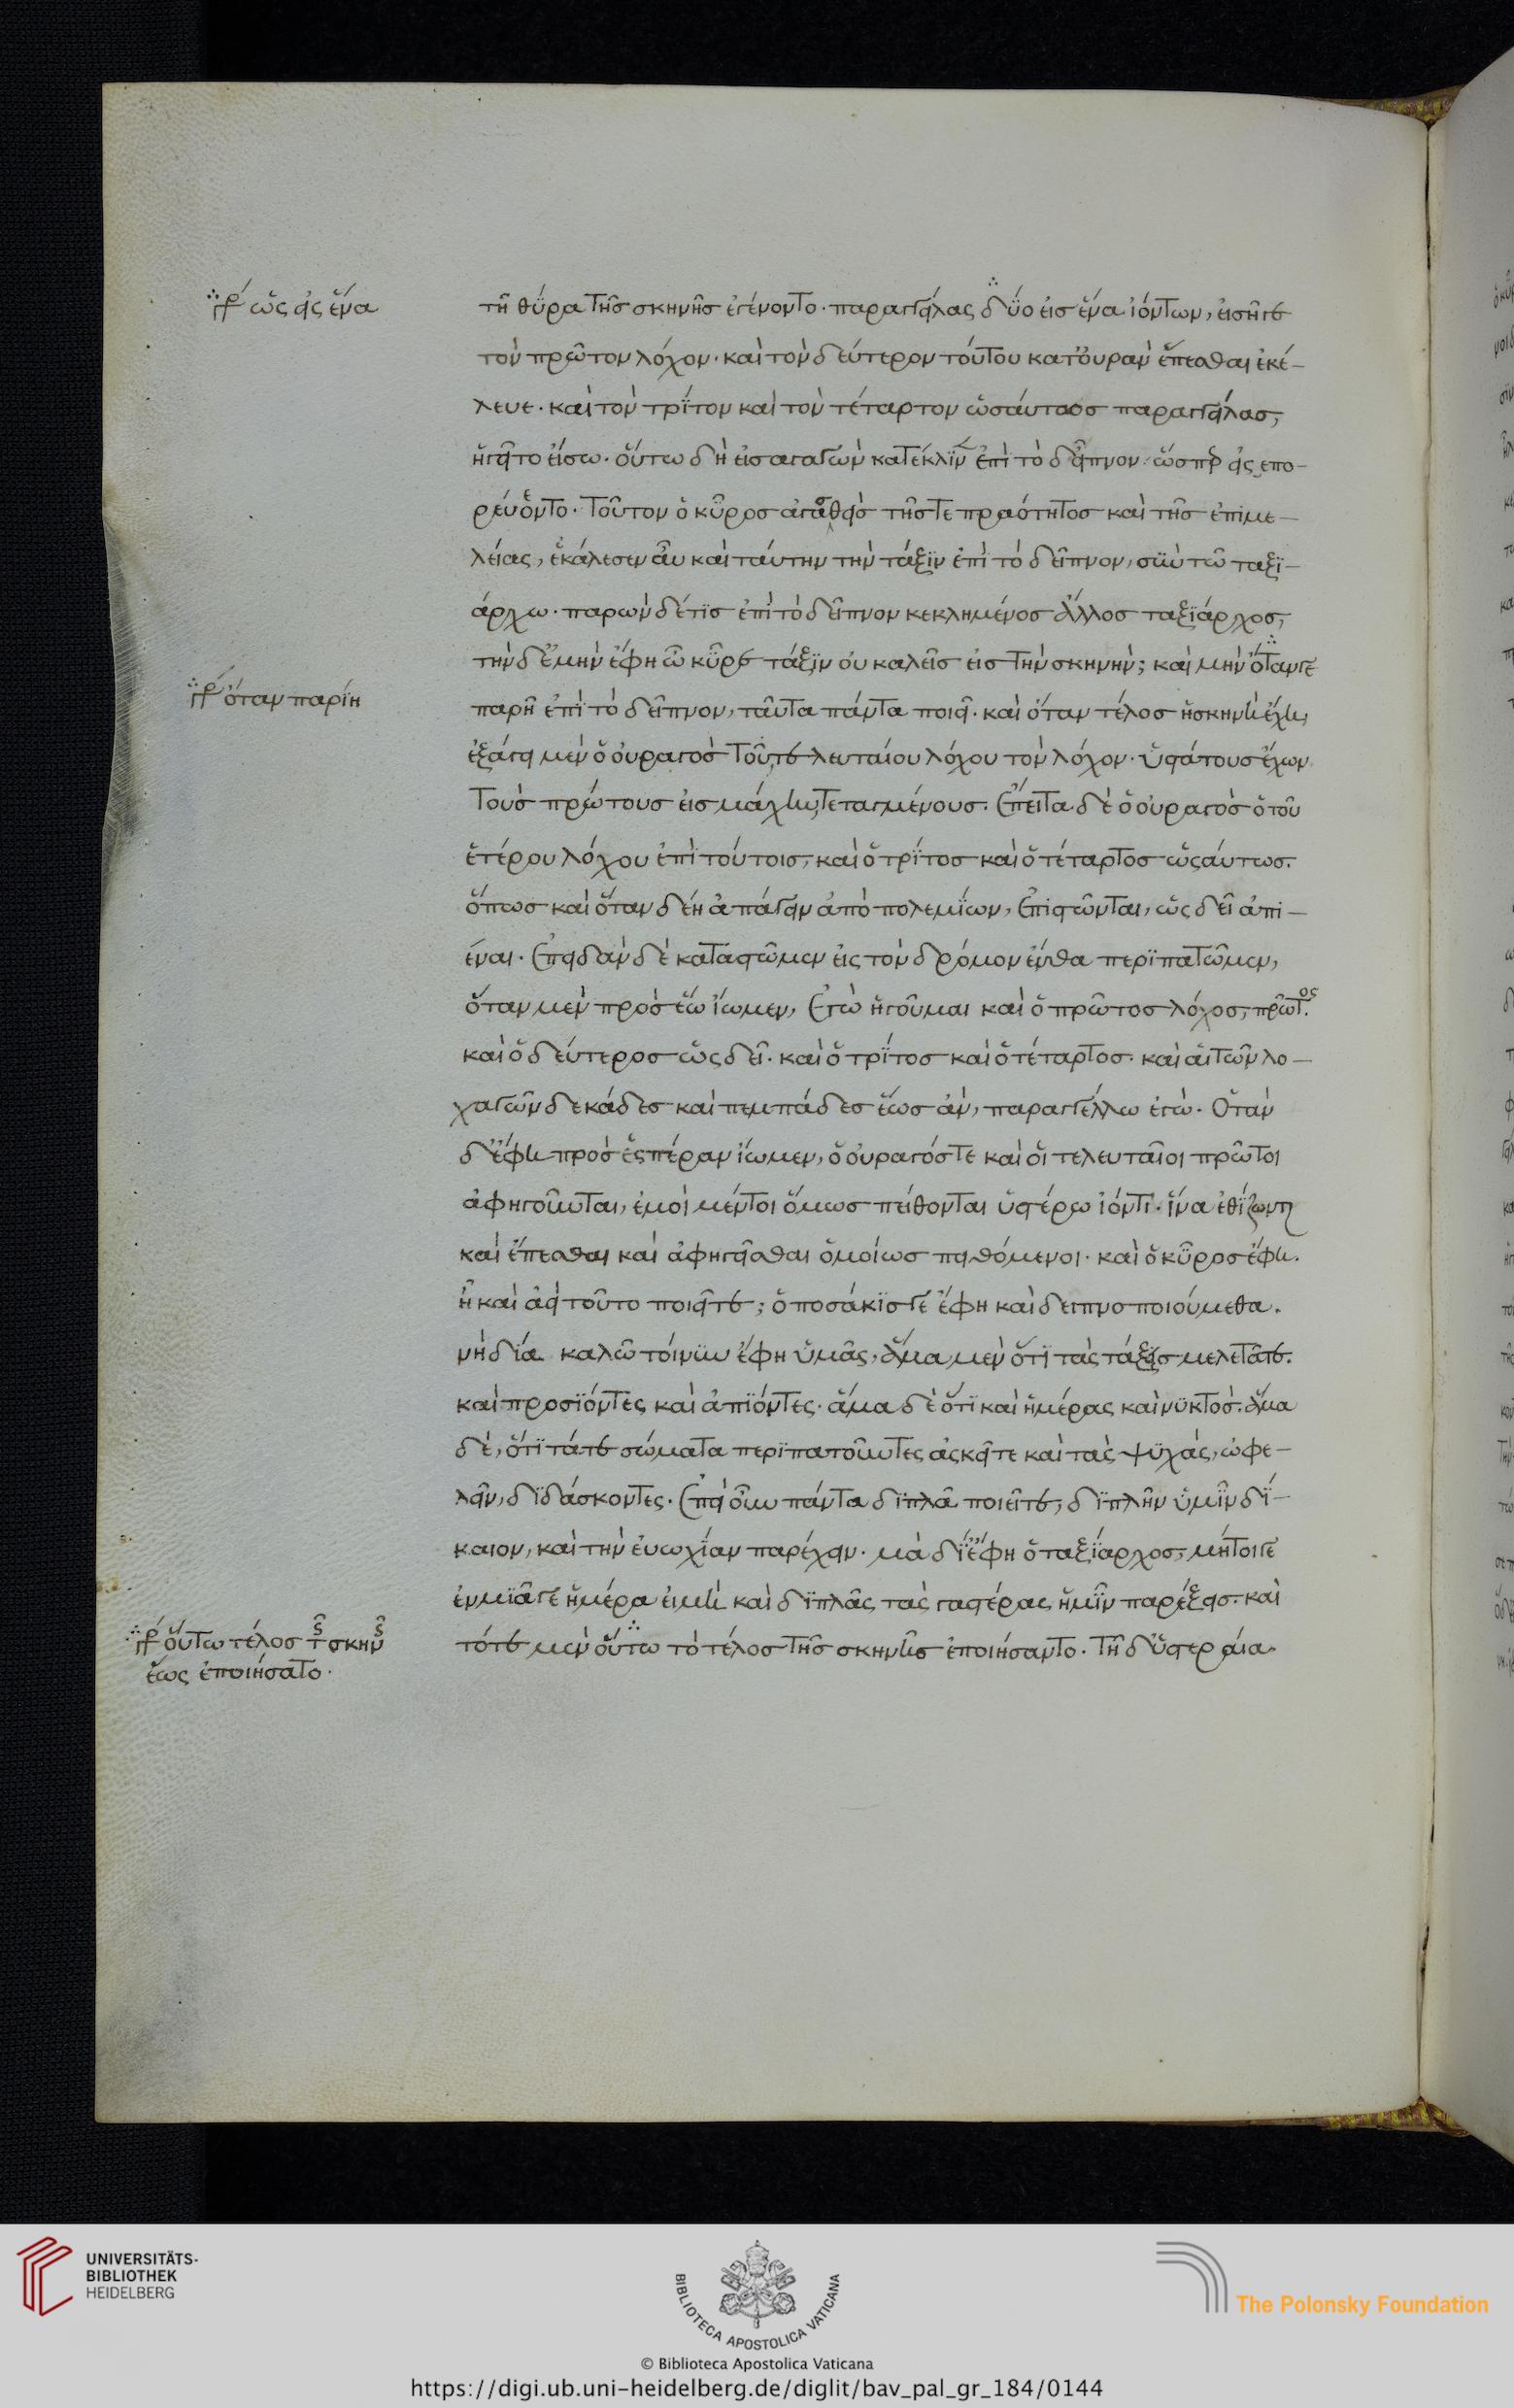 γρ ὡς εἰς ἕνα
τῇ θύρα τῆς σκηνῆς ἐγένοντο· παραγγείλας δύο εἰς ἕνα ἰόντων, εἰσῆγε
τὸν πρῶτον λόχον· καὶ τὸν δεύτερον τούτου κατ' οὐρὰν ἕπεσθαι ἐκέ–
λευε· καὶ τὸν τρίτον καὶ τὸν τέταρτον ὡσάυτως παραγγείλας,
ἡγεῖτο εἴσω· οὕτω δὴ εἰσαγαγὼν κατέκλιν ἐπὶ τὸ δεῖπνον ὥσπερ εἰσεπο–
ρεύοντο· Τοῦτον ὁ κῦρος ἀγασθεὶς τῆς τε πραότητος καὶ τῆς ἐπιμε–
λείας, ἐκάλεσεν ἂυ καὶ ταύτην τὴν τάξιν ἐπὶ τὸ δεῖπνον, σὺν τῶ ταξι–
άρχω· παρὼν δέ τις ἐπὶ τὸ δεῖπνον κεκλημένος ἄλλος ταξίαρχος,
τὴν δ' ἐμὴν ἔφη ὦ κῦρε τάξιν οὐ καλεῖς εἰς τὴν σκηνήν; καὶ μὴν ὅταν γε
γρ ὅταν παρίη
παρῆ ἐπὶ τὸ δεῖπνον, ταῦτα πάντα ποιεῖ· καὶ ὅταν τέλος ἡ σκηνὴ ἔχη,
ἐξάγει μὲν ὁ οὐραγὸς τοῦ τελευταίου λόχου τὸν λόχον· ὑστάτους ἔχων
τοὺς πρώτους εἰς μάχην τεταγμένους. Ἔπειτα δὲ ὁ οὐραγὸς ὁ τοῦ
ἑτέρου λόχου ἐπὶ τούτοις, καὶ ὁ τρίτος καὶ ὁ τέταρτος ὡσάυτως.
ὅπως καὶ ὅταν δέη ἀπάγειν ἀπὸ πολεμίων, ἐπιστῶνται, ὡς δεῖ ἀπι–
έναι· Ἐπειδὰν δὲ καταστῶμεν εἰς τὸν δρόμον ἔνθα περιπατῶμεν,
ὅταν μὲν πρὸς ἕω ἴωμεν, Ἐγὼ ἡγοῦμαι καὶ ὁ πρῶτος λόχος, πρῶτος.
καὶ ὁ δεύτερος ὡς δεῖ· καὶ ὁ τρίτος καὶ ὁ τέταρτος· καὶ ἁι τῶν λο–
χαγῶν δεκάδες καὶ πεμπάδες ἕως ἂν, παραγγέλλω ἐγώ· Ὅταν
δ' ἔφη πρὸς ἑσπέραν ἴωμεν, ὁ οὐραγός τε καὶ ὁι τελευταῖοι πρῶτοι
ἀφηγοῦνται, ἐμοὶ μέντοι ὅμως πείθονται ὑστέρω ἰόντι· ἵνα ἐθίζωνται
καὶ ἕπεσθαι καὶ ἀφηγεῖσθαι ὁμοίως πειθόμενοι· καὶ ὁ κῦρος ἔφη.
ἦ καὶ ἀεὶ τοῦτο ποιεῖτε; ὁποσάκις γέ ἔφη καὶ δειπνοποιούμεθα.
νὴ δία καλῶ τοίνυν ἔφη ὑμᾶς, ἅμα μὲν ὅτι τὰς τάξεις μελετᾶτε.
καὶ προσιόντες καὶ ἀπιόντες· ἅμα δὲ ὅτι καὶ ἡμέρας καὶ νυκτός. ἅμα
δὲ, ὅτι τά τε σώματα περιπατοῦντες ἀσκεῖτε καὶ τὰς ψυχάς, ὠφε–
λεῖν, διδάσκοντες. Ἐπεὶ οὖν πάντα διπλᾶ ποιεῖτε, διπλῆν ὑμῖν δί–
καιον, καὶ τὴν ἐυωχίαν παρέχειν· μὰ δί' ἔφη ὁ ταξίαρχος, μήτοι γε
ἐν μιᾶ γέ ἡμέρα ἐι μὴ καὶ διπλᾶς τὰς γαστέρας ἡμῖν παρέξεις. καὶ
τότε μὲν οὕτω τὸ τέλος τῆς σκηνῆς ἐποιήσαντο· τῆ δ' ὑστεραία
γρ οὕτω τέλος τῆς σκηνῆς
ἕως ἐποιήσατο·
UNIVERSITÄTS-
BIBLIOTHEK
HEIDELBERG
BIBLIOTECA APOSTOLICA VATICANA
The Polonsky Foundation
© Biblioteca Apostolica Vaticana
https://digi.ub.uni-heidelberg.de/diglit/bav_pal_gr_184/0144